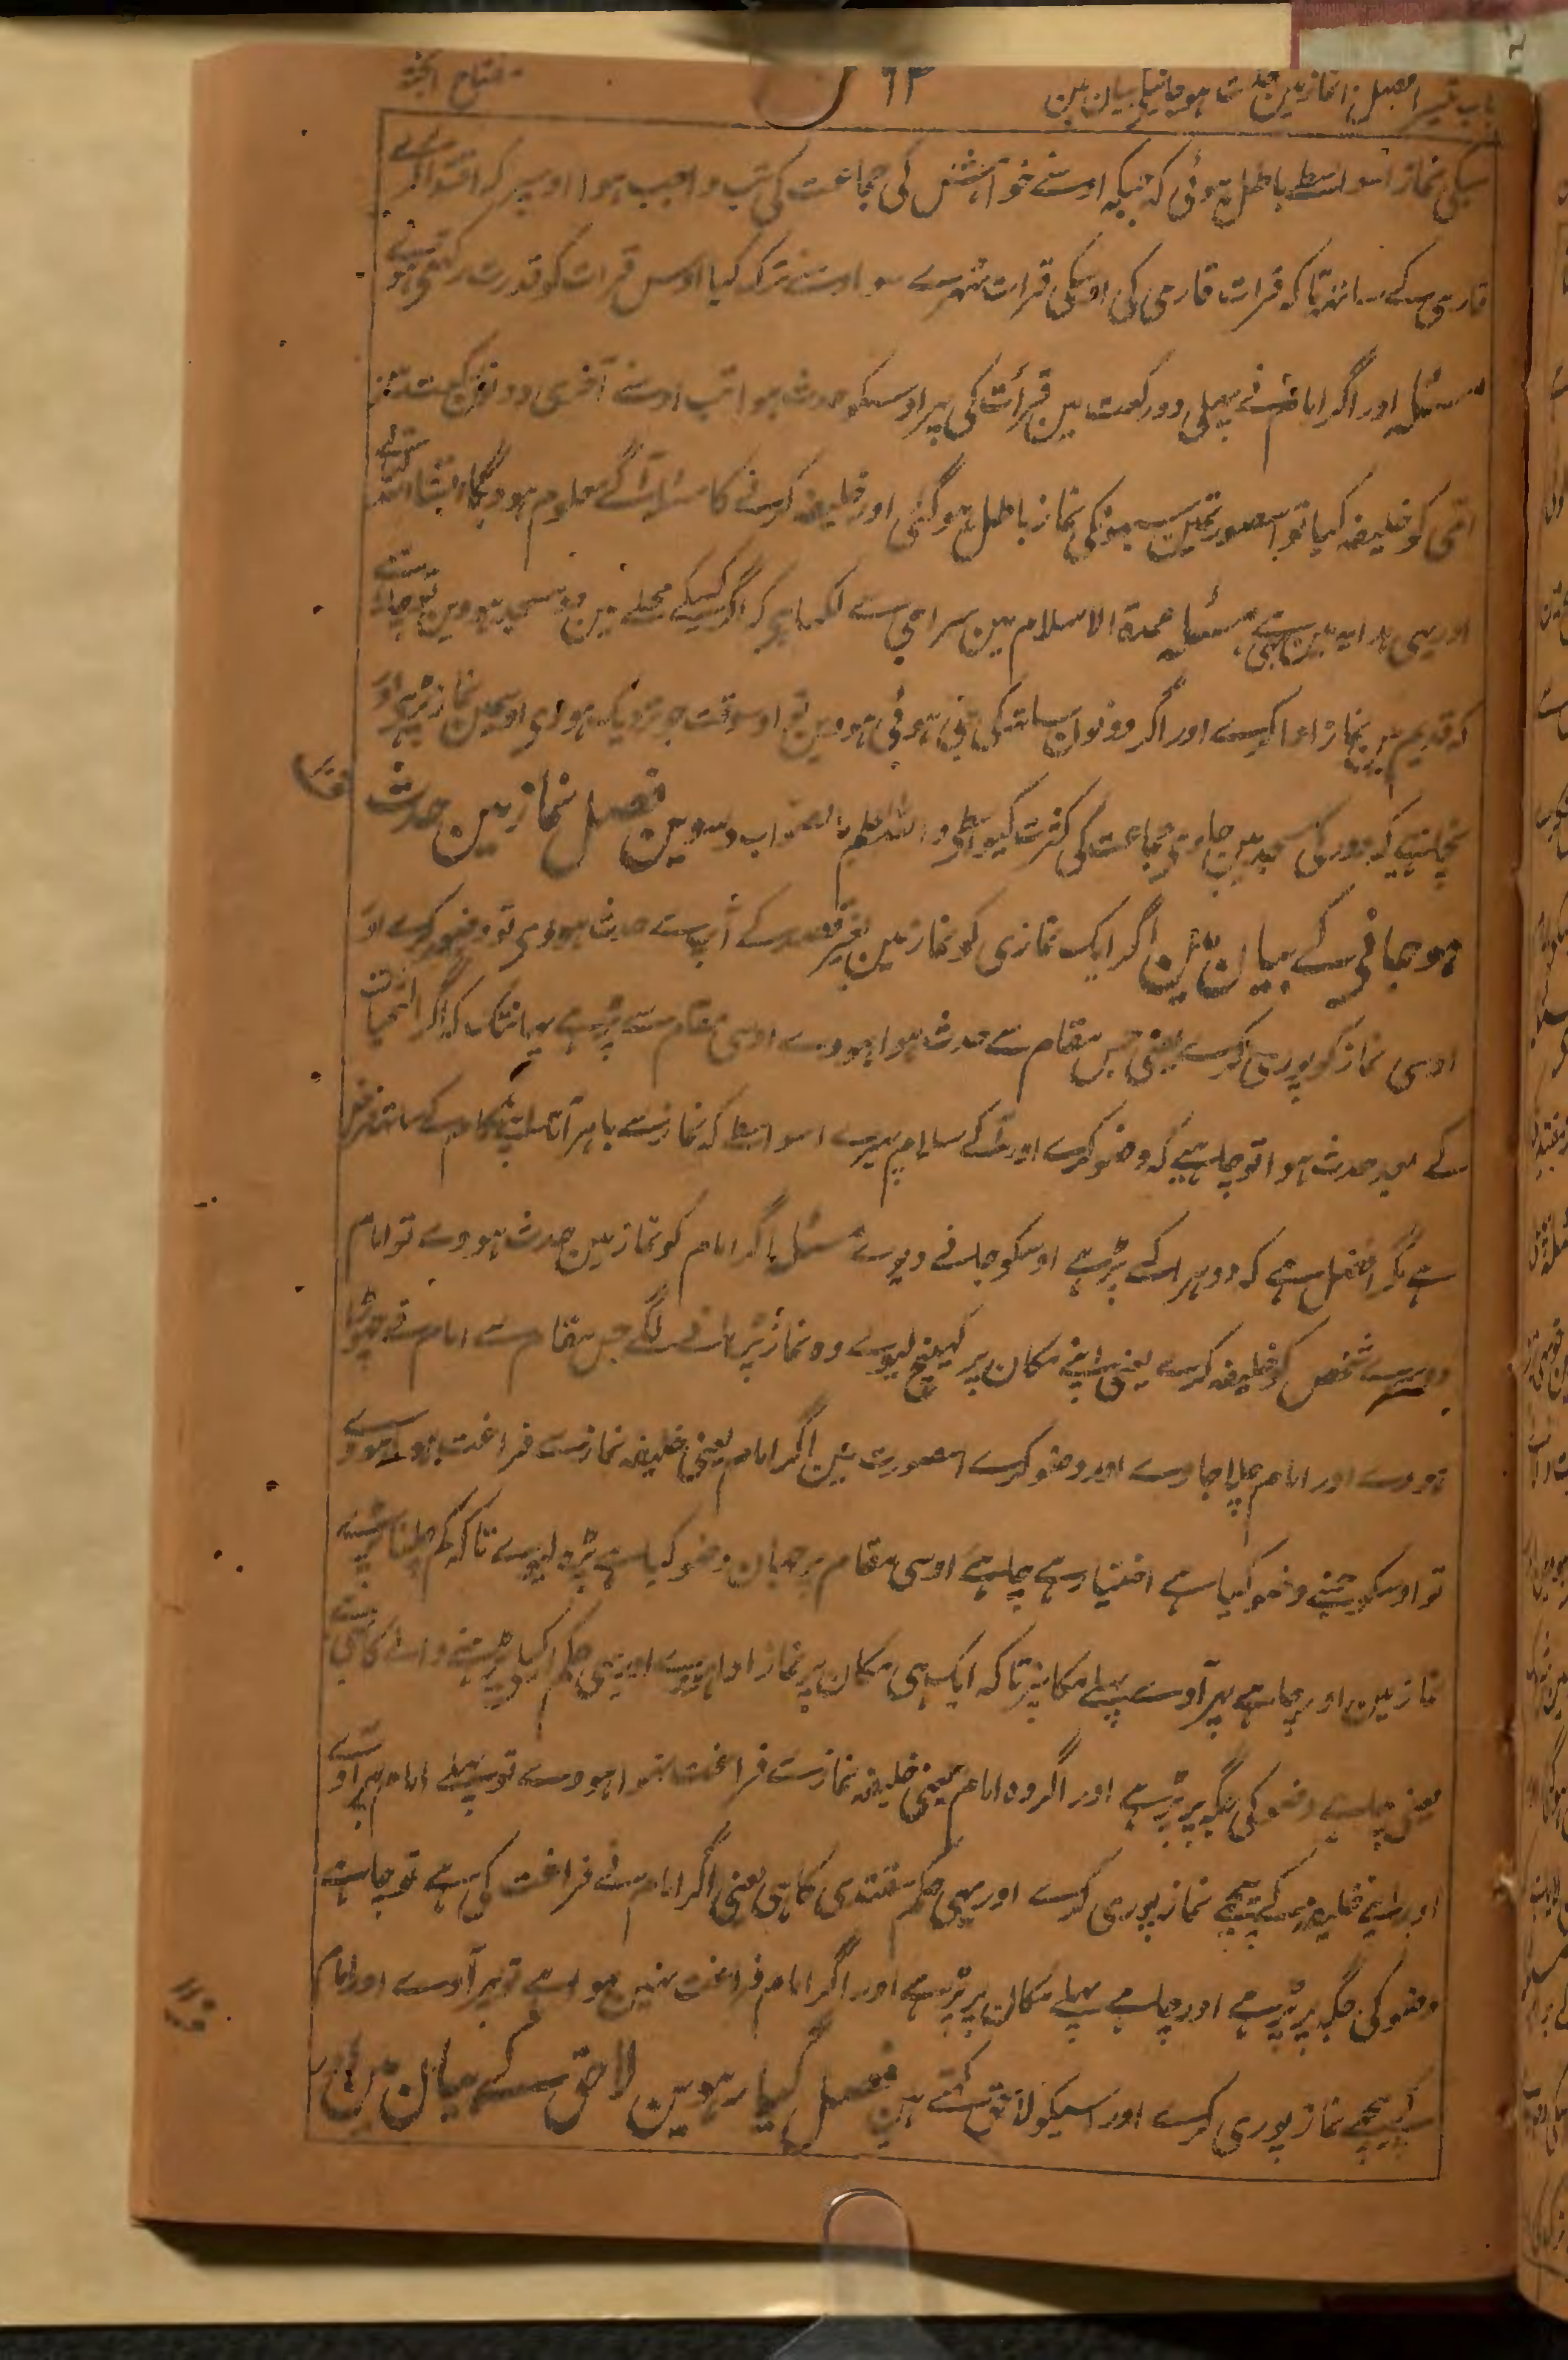 باب تیسرا فصل نمازمین حدث ہوجانیکی بیان مین ٦٣ مفتاح الجنۃ
سبکی نماز اسواسطے باطل ہوئی کہ جبکہ اوسنے خواہش کی جماعت کی تب واجب ہوا اوسپر کہ اقتدا کرے
قاری کے ساتہہ تا کہ قرات قاری کی اوسکی قرات ٹہرے سو اوسنے ترک کیا اوس قرات کو قدرت رکہتے ہو
مسئلہ اور اگر امام نے پہلی دو رکعت مین قرأت کی پہر اوسکو حدث ہوا تب اوسنے آخری دونو رکعت مین
امی کو خلیفہ کیا تو اسصورتمین سبہونکی نماز باطل ہوگئی اور خلیفہ کرنے کا مسئلہ آگے معلوم ہوویگا انشاء اللہ تعالے
اور یہی ہدایہ مین ہے مسئلہ عمدۃ الاسلام مین سراجی سے لکہا ہی کہ اگر کسیکے محلے مین دو مسجد ہووین تو چاہئے
کہ قدیم مین نماز ادا کرے اور اگر دونوان ساتہ کی بنی ہوئی ہووین تو اوسوقت جو نزدیک ہووی اوسمین نماز پڑہے اور
نچاہئیے کہ دور کی مسجدمین جاوی جماعت کی کثرت کیواسطی واللہ اعلم بالصواب دسوین فصل نمازمین حدث
ہوجانی کے بیان مین اگر ایک نمازی کو نمازمین بغیر قصد کے آپ سے حدث ہووی تو وضو کرے اور
اوسی نماز کو پوری کرے یعنی جس مقام سے حدث ہوا ہووے اوسی مقام سے پڑہے یہانتک کہ اگر التحیات
کے بعد حدث ہوا تو چاہئے کہ وضو کرے اور آکے سلام پہیرے اسواسطے کہ نمازسے باہر آنا اپنے کام کے ساتہہ فرض
ہے مگر افضل ہے کہ دوہرا کے پڑہے اوسکو جانے دیوے مسئلہ اگر امام کو نمازمین حدث ہووے تو امام
دوسرے شخص کو خلیفہ کرے یعنی اپنے مکان پر کہینچ لیوے وہ نماز پڑہانے لگے جس مقام سے امام نے چہوڑا
ہووے اور امام چلا جاوے اور وضو کرے اسصورت مین اگر امام یعنی خلیفہ نمازسے فراغت ہوا ہووے
تو اوسکو جسنے وضو کیا ہے اختیار ہے چاہے اوسی مقام پر جہان وضو کیا ہے پڑہ لیوے تا کہ کم چلنا پڑے
نمازمین اور چاہے پہر آوے پہلے مکانپر تا کہ ایک ہی مکان پر نماز ادا ہووے اور یہی حکم اکیلا پڑہنے والے کا ہی
یعنی چاہے وضو کی جگہ پر پڑہے اور اگر وہ امام یعنی خلیفہ نمازسے فراغت نہوا ہووے تو پہلے امام پہر آوے
اور اپنے خلیفہ کے پیچہے نماز پوری کرے اور یہی حکم مقتدی کا ہی یعنی اگر امام نے فراغت کی ہے تو چاہے
وضو کی جگہ پر پڑہے اور چاہے پہلے مکان پر پڑہے اور اگر امام فراغت نہین ہوا ہے تو پہر آوے اور امام
کے پیچہے نماز پوری کرے اور اسیکو لاحق کہتے ہین فصل گیارہوین لاحق کے بیان مین